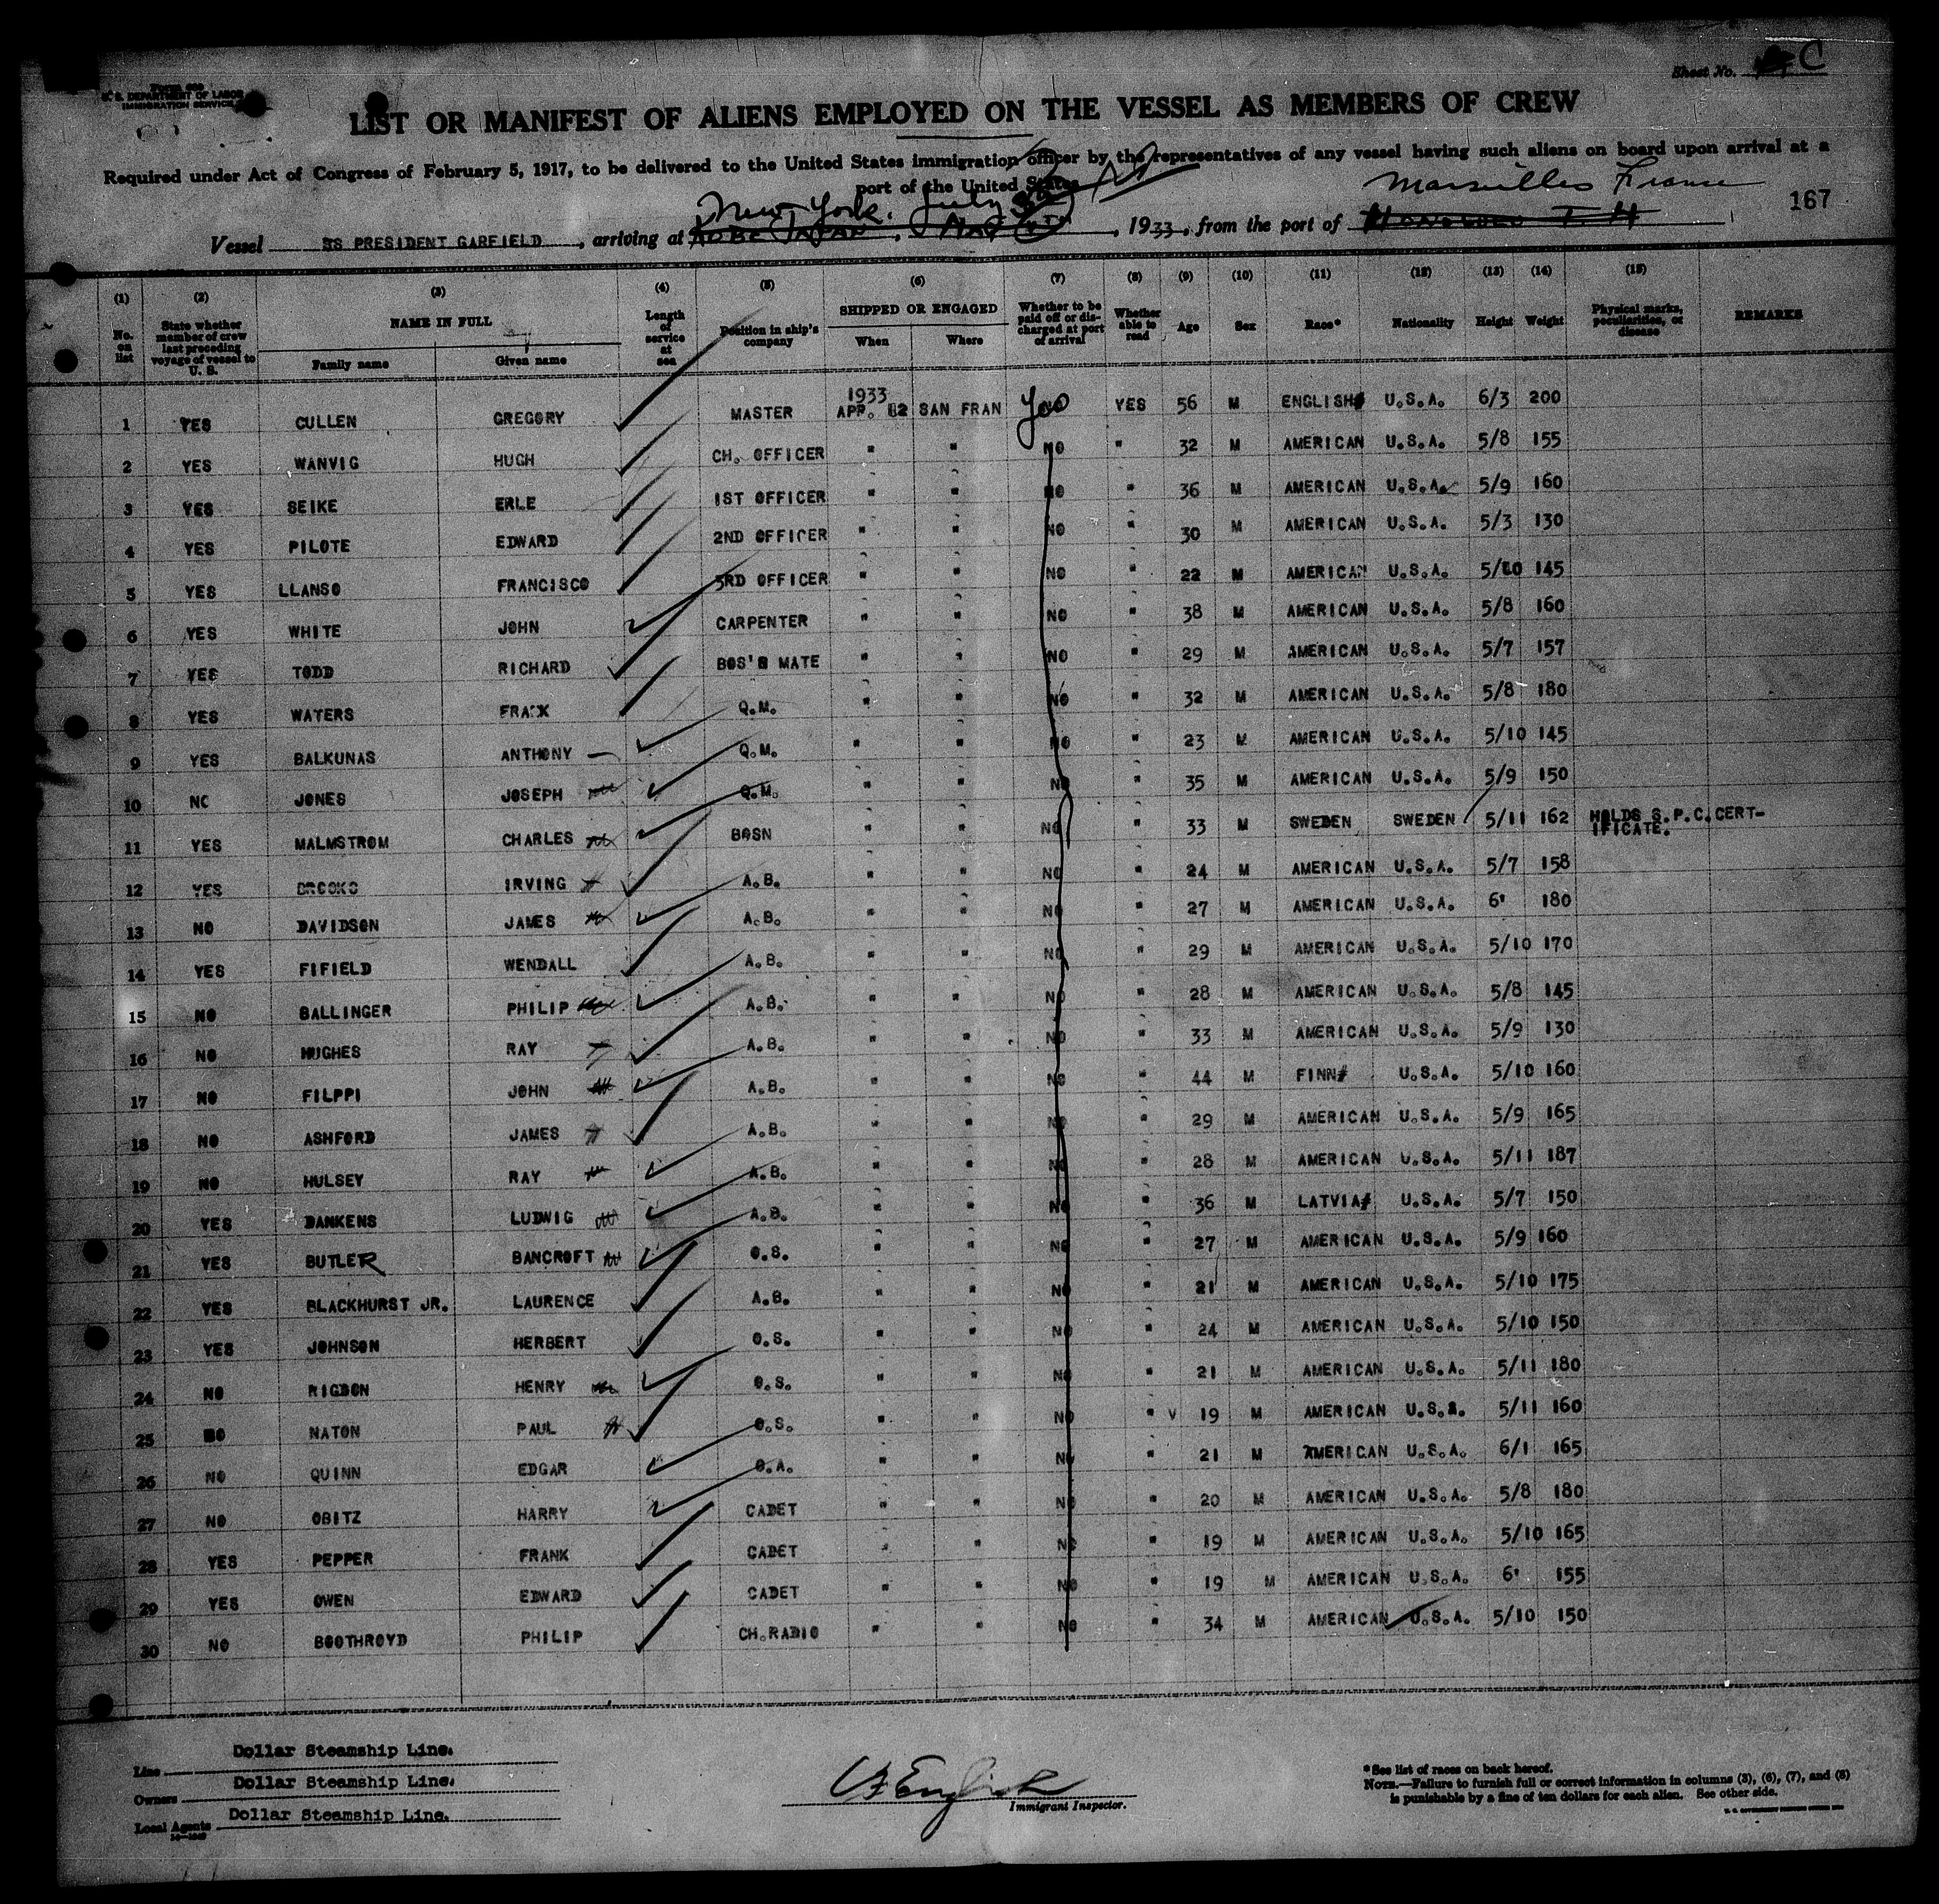 Sheet No. C
Form 689
U. S. DEPARTMENT OF LABOR
IMMIGRATION SERVICE
LIST OR MANIFEST OF ALIENS EMPLOYED ON THE VESSEL AS MEMBERS OF CREW
Required under Act of Congress of February 5, 1917, to be delivered to the United States immigration officer by the representatives of any vessel having such aliens on board upon arrival at a
port of the United States
New York. July Marseilles France 167
Vessel SS PRESIDENT GARFIELD, arriving at KOBE JAPAN, 1933, from the port of HONOLULU T H
(1) (2) (3) (4) (5) (6) (7) (8) (9) (10) (11) (12) (13) (14) (15)
No. on list State whether member of crew last preceding voyage of vessel to U. S. NAME IN FULL Family name Given name Length of service at sea Position in ship's company SHIPPED OR ENGAGED When Where Whether to be paid off or discharged at port of arrival Whether able to read Age Sex Race* Nationality Height Weight Physical marks, peculiarities, or disease REMARKS
1 YES CULLEN GREGORY MASTER 1933 APR. 12 SAN FRAN Yes YES 56 M ENGLISH U.S.A. 6/3 200
2 YES WANVIG HUGH CH. OFFICER " " NO " 32 M AMERICAN U.S.A. 5/8 155
3 YES SEIKE ERLE 1ST OFFICER " " NO " 36 M AMERICAN U.S.A. 5/9 160
4 YES PILOTE EDWARD 2ND OFFICER " " NO " 30 M AMERICAN U.S.A. 5/3 130
5 YES LLANSO FRANCISCO 3RD OFFICER " " NO " 22 M AMERICAN U.S.A. 5/10 145
6 YES WHITE JOHN CARPENTER " " NO " 38 M AMERICAN U.S.A. 5/8 160
7 YES TODD RICHARD BOS'N MATE " " NO " 29 M AMERICAN U.S.A. 5/7 157
8 YES WATERS FRANK Q.M. " " NO " 32 M AMERICAN U.S.A. 5/8 180
9 YES BALKUNAS ANTHONY Q.M. " " NO " 23 M AMERICAN U.S.A. 5/10 145
10 NO JONES JOSEPH Q.M. " " NO " 35 M AMERICAN U.S.A. 5/9 150
11 YES MALMSTROM CHARLES BOSN " " NO " 33 M SWEDEN SWEDEN 5/11 162 HOLDS S.P.C. CERT-
IFICATE.
12 YES BROOKS IRVING A.B. " " NO " 24 M AMERICAN U.S.A. 5/7 158
13 NO DAVIDSON JAMES A.B. " " NO " 27 M AMERICAN U.S.A. 6' 180
14 YES FIFIELD WENDALL A.B. " " NO " 29 M AMERICAN U.S.A. 5/10 170
15 NO BALLINGER PHILIP A.B. " " NO " 28 M AMERICAN U.S.A. 5/8 145
16 NO HUGHES RAY A.B. " " NO " 33 M AMERICAN U.S.A. 5/9 130
17 NO FILPPI JOHN A.B. " " NO " 44 M FINN U.S.A. 5/10 160
18 NO ASHFORD JAMES A.B. " " NO " 29 M AMERICAN U.S.A. 5/9 165
19 NO HULSEY RAY A.B. " " NO " 28 M AMERICAN U.S.A. 5/11 187
20 YES DANKENS LUDWIG A.B. " " NO " 36 M LATVIA U.S.A. 5/7 150
21 YES BUTLER BANCROFT O.S. " " NO " 27 M AMERICAN U.S.A. 5/9 160
22 YES BLACKHURST JR. LAURENCE A.B. " " NO " 21 M AMERICAN U.S.A. 5/10 175
23 YES JOHNSON HERBERT O.S. " " NO " 24 M AMERICAN U.S.A. 5/10 150
24 NO RIGDON HENRY O.S. " " NO " 21 M AMERICAN U.S.A. 5/11 180
25 NO NATON PAUL O.S. " " NO " 19 M AMERICAN U.S.A. 5/11 160
26 NO QUINN EDGAR O.A. " " NO " 21 M AMERICAN U.S.A. 6/1 165
27 NO OBITZ HARRY CADET " " NO " 20 M AMERICAN U.S.A. 5/8 180
28 YES PEPPER FRANK CADET " " NO " 19 M AMERICAN U.S.A. 5/10 165
29 YES OWEN EDWARD CADET " " NO " 19 M AMERICAN U.S.A. 6' 155
30 NO BOOTHROYD PHILIP CH.RADIO " " NO " 34 M AMERICAN U.S.A. 5/10 150
Line Dollar Steamship Line.
Owners Dollar Steamship Line.
Local Agents Dollar Steamship Line.
English
Immigrant Inspector.
*See list of races on back hereof.
NOTE.—Failure to furnish full or correct information in columns (3), (6), (7), and (8)
is punishable by a fine of ten dollars for each alien. See other side.